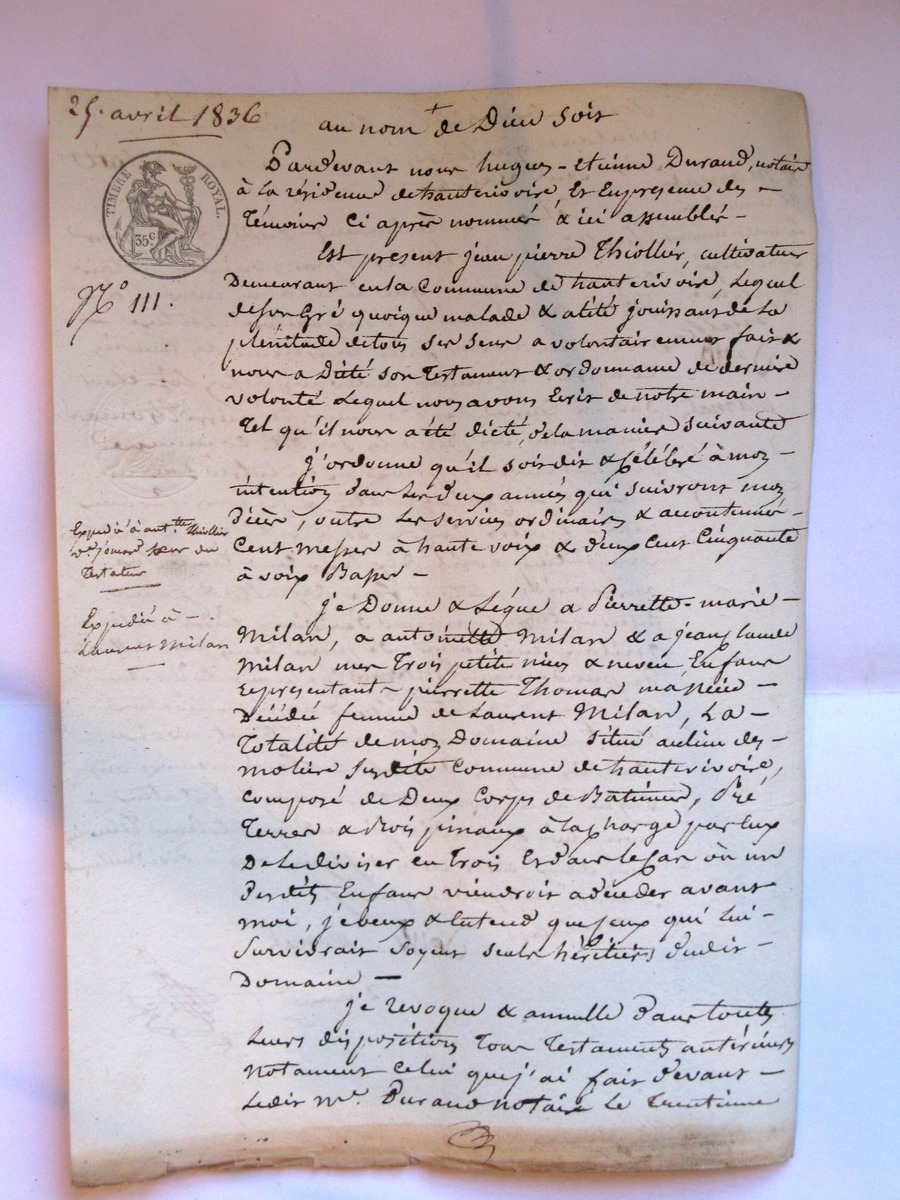 25. avril 1836
au nom de Dieu soit
TIMBRE ROYAL.
35c
N° 111.
Pardevant nous hugues-Etienne Durand, notaire
à la résidence de hauterivoire, Et En presence des
Témoins ci après nommés & ici assemblés
Est present jean pierre Thiollier, cultivateur
Demeurant en la Commune de hauterivoire, Lequel
de son Gré quoique malade & alité jouissant de La
plénitude de tous ses sens a volontairement fait &
nous a Dicté son Testament & ordonnance de derniere
volonté Lequel nous avons Ecrit de notre main
tel qu'il nous a été dicté, de la maniere suivante
j'ordonne qu'il soit dit & Célébré à mon
intention dans Les deux années qui suivront mon
Décès, outre Les services ordinaires & accoutumés
Cent messes à haute voix & deux Cent Cinquante
à voix Basse
Expedié à ant.tte thiollier
sœur du
Testateur
Expedié à
Laurent Milan
je Donne & Lègue a Pierrette-marie
Milan, a antoinette Milan & a jean Claude
Milan mes Trois petites nieces & neveu Enfans
Représentant pierrette Thomas ma Niece
Décédée femme de Laurent Milan, La
Totalité de mon Domaine situé au lieu des
moliere susdite Commune de hauterivoire,
Composé de Deux Corps de Batimens, Pré
Terres & Bois pinaux à la charge par Eux
De Le diviser en Trois Et dans le Cas où un
Desdits Enfans viendroit a déceder avant
moi, je veux & Entend que Ceux qui Lui
Survivrait soyent seuls héritiers dudit
Domaine
je revoque & annulle Par toutes
disposition Tous Testaments antérieurs
Notament Celui que j'ai fait devant
Ledit Me Durand notaire Le Trentieme